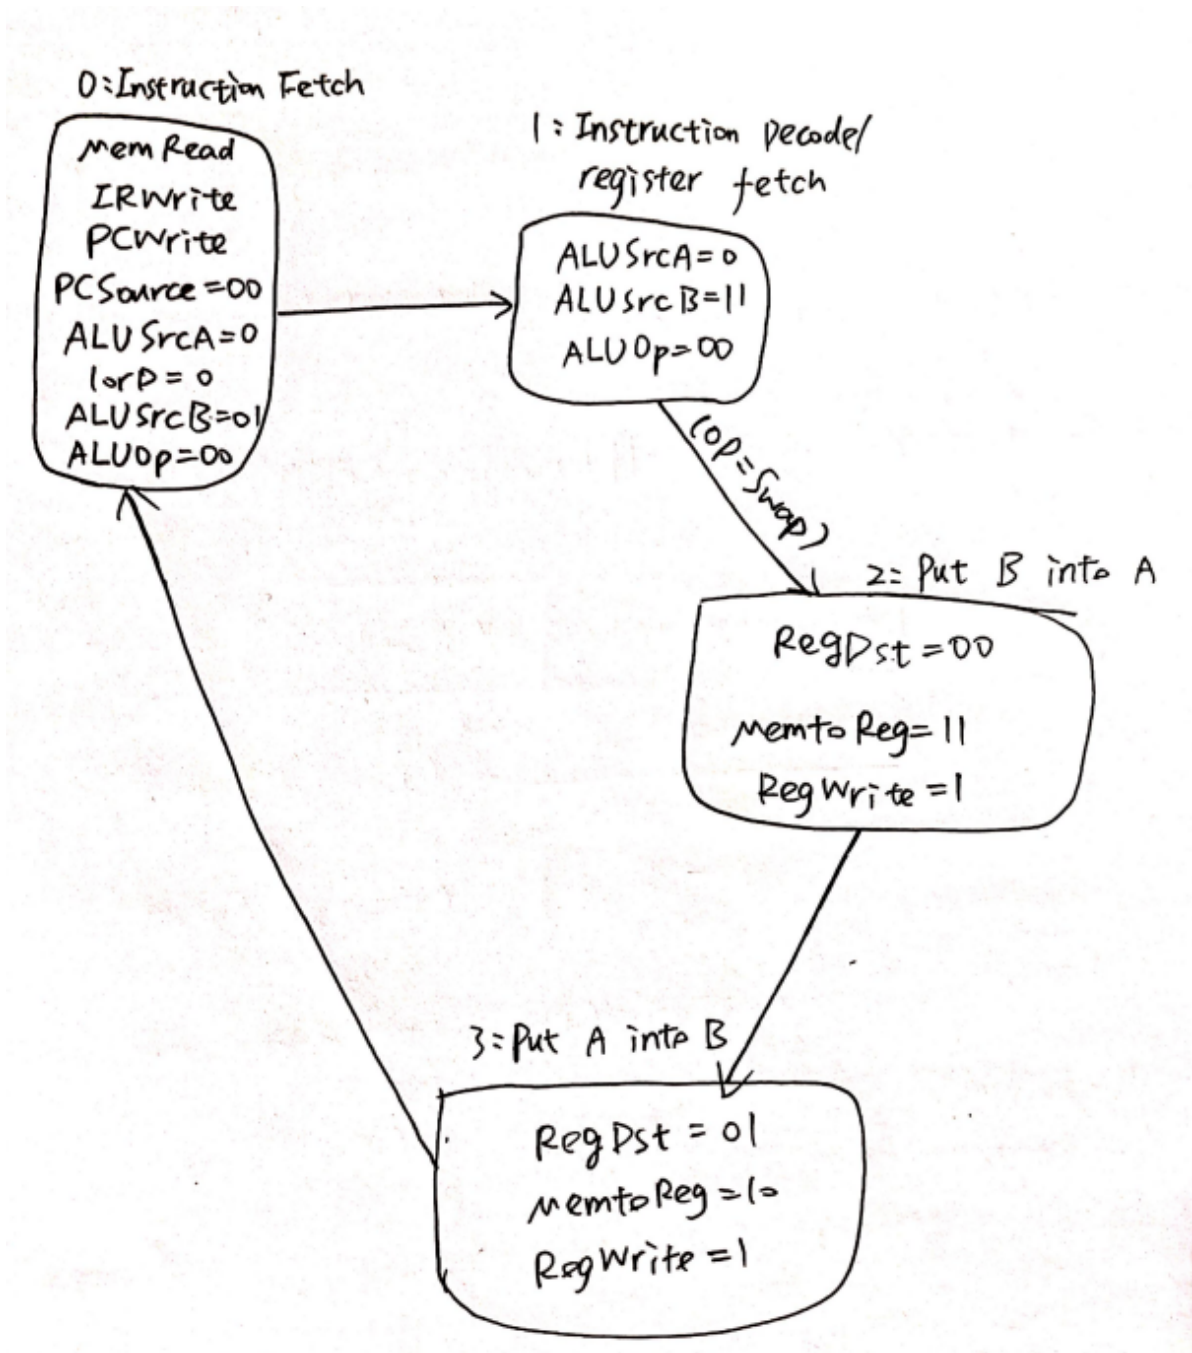 0:Instruction Fetch
MemRead
IRWrite
PCWrite
PCSource=00
ALUSrcA=0
IorD=0
ALUSrcB=01
ALUOp=00
1: Instruction Decode/
register fetch
ALUSrcA=0
ALUSrcB=11
ALUOp=00
(OP=Swap)
2: Put B into A
RegDst=00
MemtoReg=11
RegWrite=1
3: Put A into B
RegDst=01
MemtoReg=10
RegWrite=1